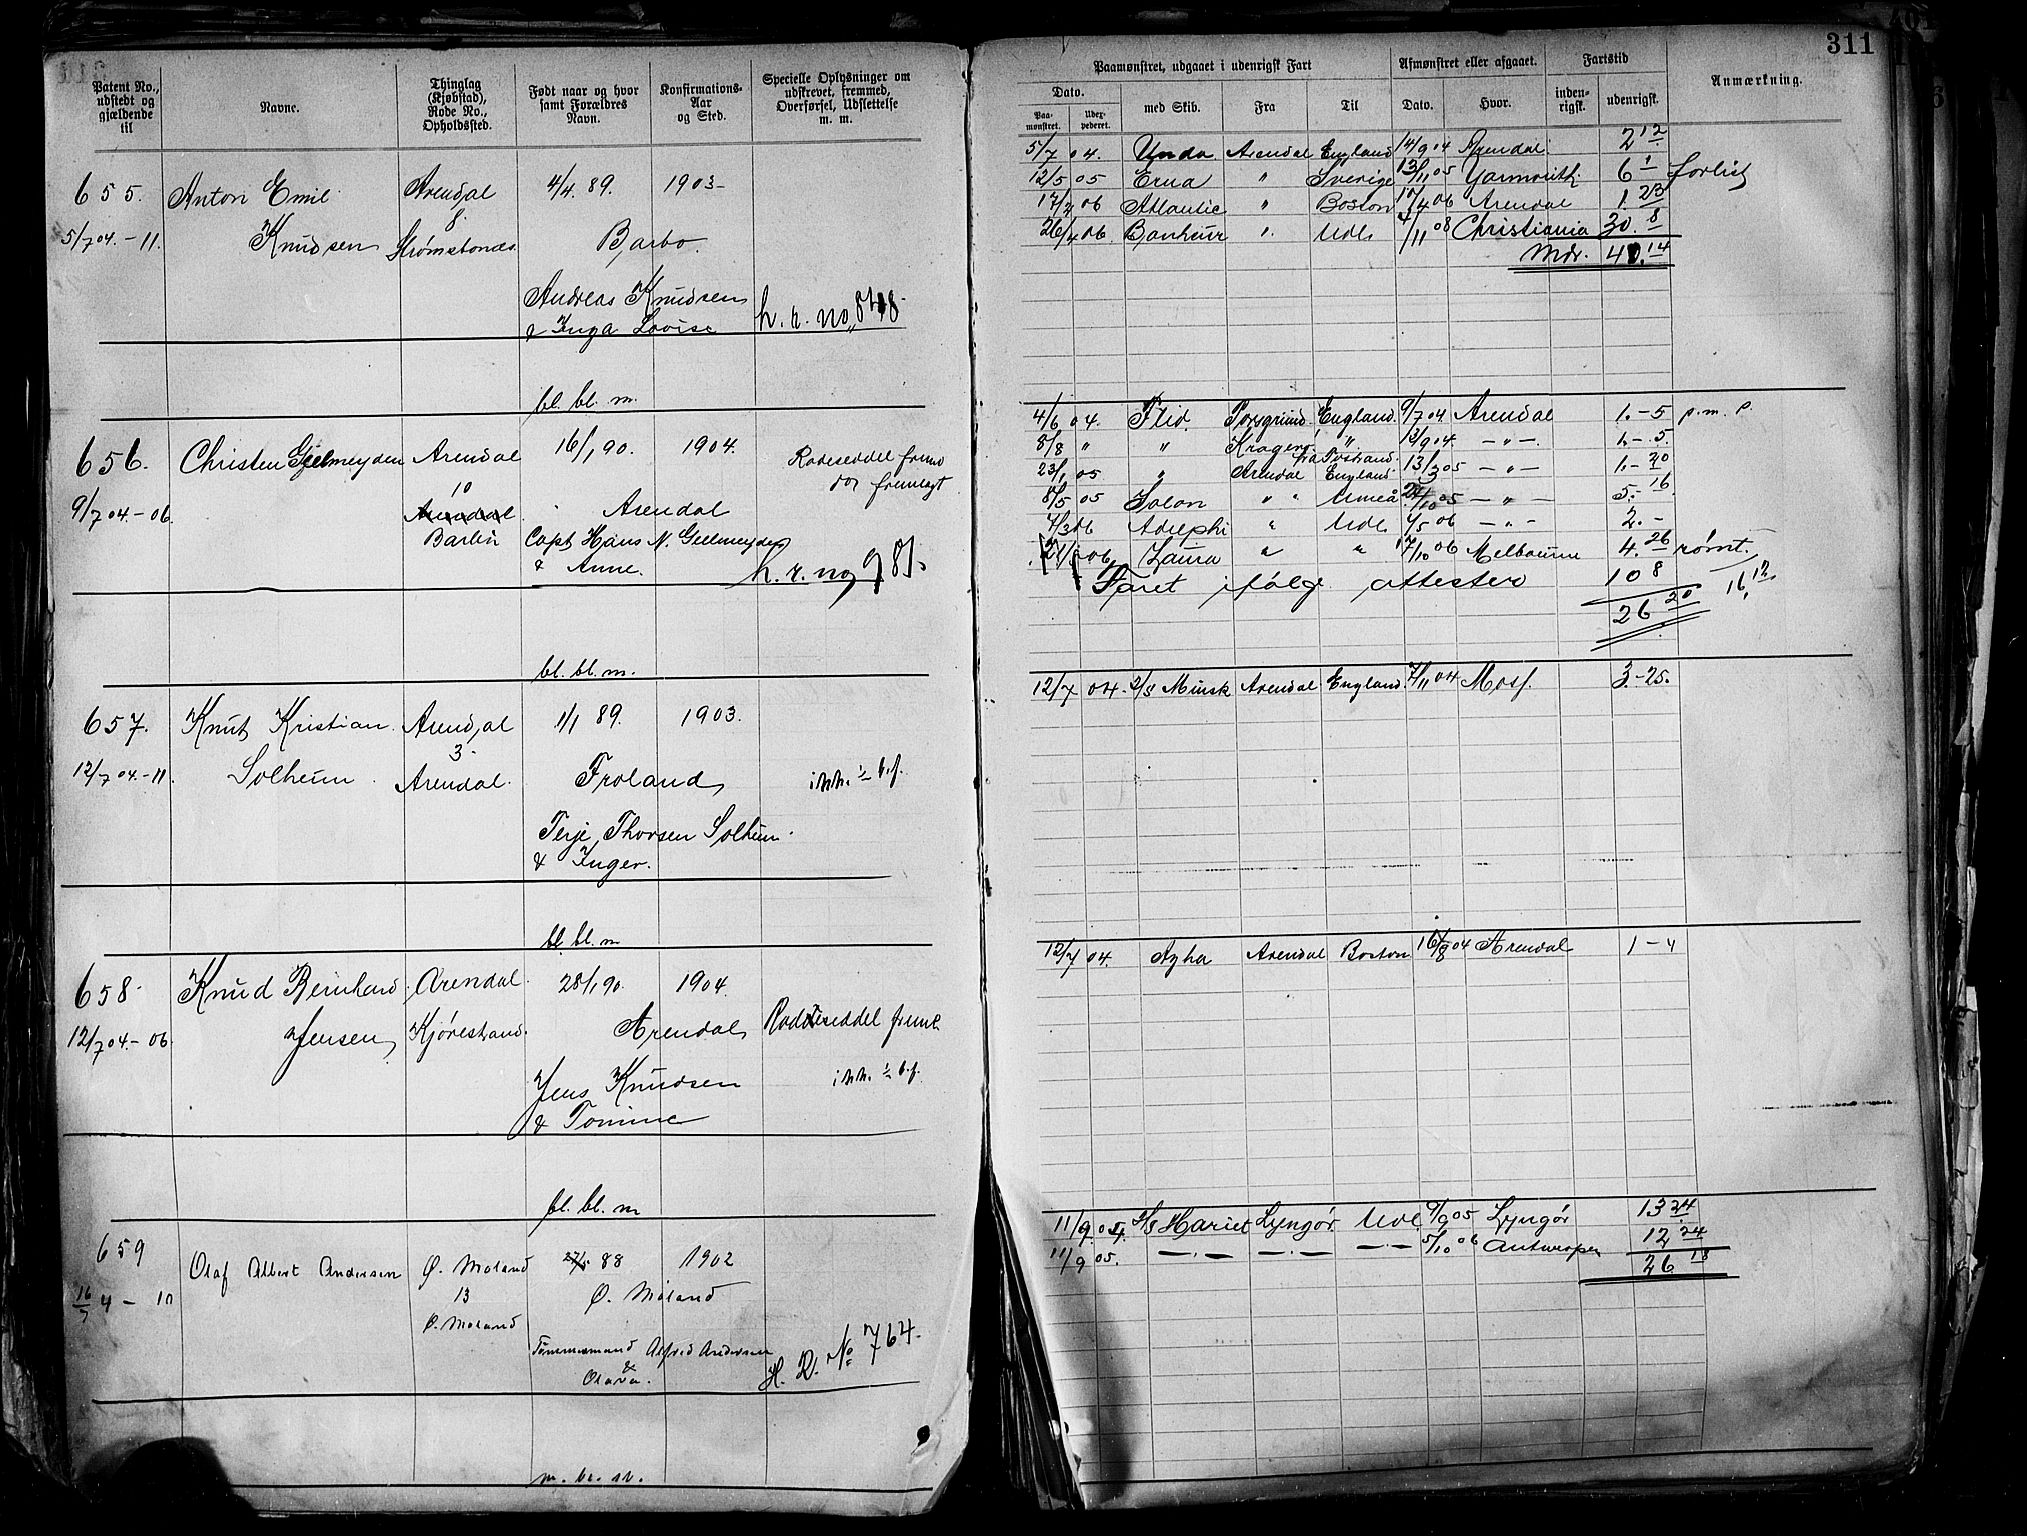 311
Patent No., udstedt og gjældende til
Navne.
Thinglag (Kjøbstad), Rode No., Opholdssted.
Født naar og hvor samt Forældres Navn.
Konfirmations- Aar og Sted.
Specielle Oplysninger om udskrevet, fremmed, Overførsel, Udslettelse m. m.
Paamønstret, udgaaet i udenrigsk Fart
Afmønstret eller afgaaet.
Fartstid
Anmærkning.
Dato.
Paa- mønstret.
Udex- pederet.
med Skib.
Fra
Til
Dato.
Hvor.
inden- rigsk.
udenrigsk.
655. Anton Emil Arendal 4/4. 89. 1903-
8
5/7 04. - 11. Knudsen Strømsbonæs. Barbo.
Andreas Knudsen
& Inga Lovise h. r. no
bl. bl. m.
5/7 04. Unda Arendal England 14/9 04 Arendal. 2 12
12/5 05 Erna " Sverige 13/11 05 Yarmouth 6 1 forlist
17/2 06 Atlantic " Boston 17/4 06 Arendal 1. 23
26/4 06 Banhuur ". Udl. 4/11 08 Christiania 30. 8
Mdr. 40. 14
656. Christen Gjelmeyden Arendal 16/1 90. 1904. Rodeseddel fremd
10
9/7 04. - 06. Arendal Arendal
Barbu Capt Hans N. Gjelmeyden
& Anne. h. r. no 981.
bl. bl. m.
4/6 04. Flid. Porsgrund England. 9/7 04. Arendal 1. - 5 p. m. p.
8/8 " " Kragerø " 13/9 04. - " - 1. - 5.
23/1 05 " Arendal England 13/3 05 - " - 1. - 20
8/5 05 Solon " " Umeå 24/10 05 - " - 5. - 16
7/3 06 Adelphi " Udl. 4/5 06 - " - 2. -
06 Laura " " 17/10 06 Melbourne 4. 26 rømt.
Faret ifølge attester 10 8 16. 12
26 20
657. Knut Kristian Arendal 1/1 89. 1903.
3
12/7 04. - 11. Solheim Arendal. Froland
Terje Thorsen Solheim
& Inger.
bl. bl. m
12/7 04. S/S Minsk Arendal England. 7/11 04 Moss. 3. - 25.
658. Knud Bernhard Arendal 28/1 90. 1904.
12/7 04. - 06. Jensen Kjørestrand. Arendal Rodeseddel freml.
Jens Knudsen
& Tomine
bl. bl. m
12/7 04. Ayha Arendal Boston 16/8 04 Arendal 1 - 4
659 Olaf Albert Andersen Ø. Moland 27/5 88 1902
16/7 4 - 10 13 Ø. Moland
Ø. Moland
Tømmermand Alfred Andersen
& Olava. H. R. No 764.
11/9 04. S/S Hariet Lyngør Udl. 9/9 05 Lyngør 13 24
11/9 05. - . - - . - - . - 5/10 06 Antwerpen 12 24
26 18